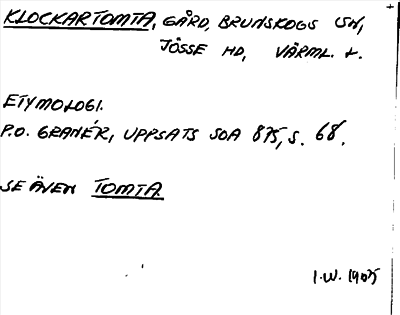 KLOCKARTOMTA, GÅRD, BRUNSKOGS SN,
JÖSSE HD, VÄRML. L.
ETYMOLOGI.
P.O. GRANÉR, UPPSATS SOA 875, S. 68.
SE ÄVEN TOMTA
I.W. 1975